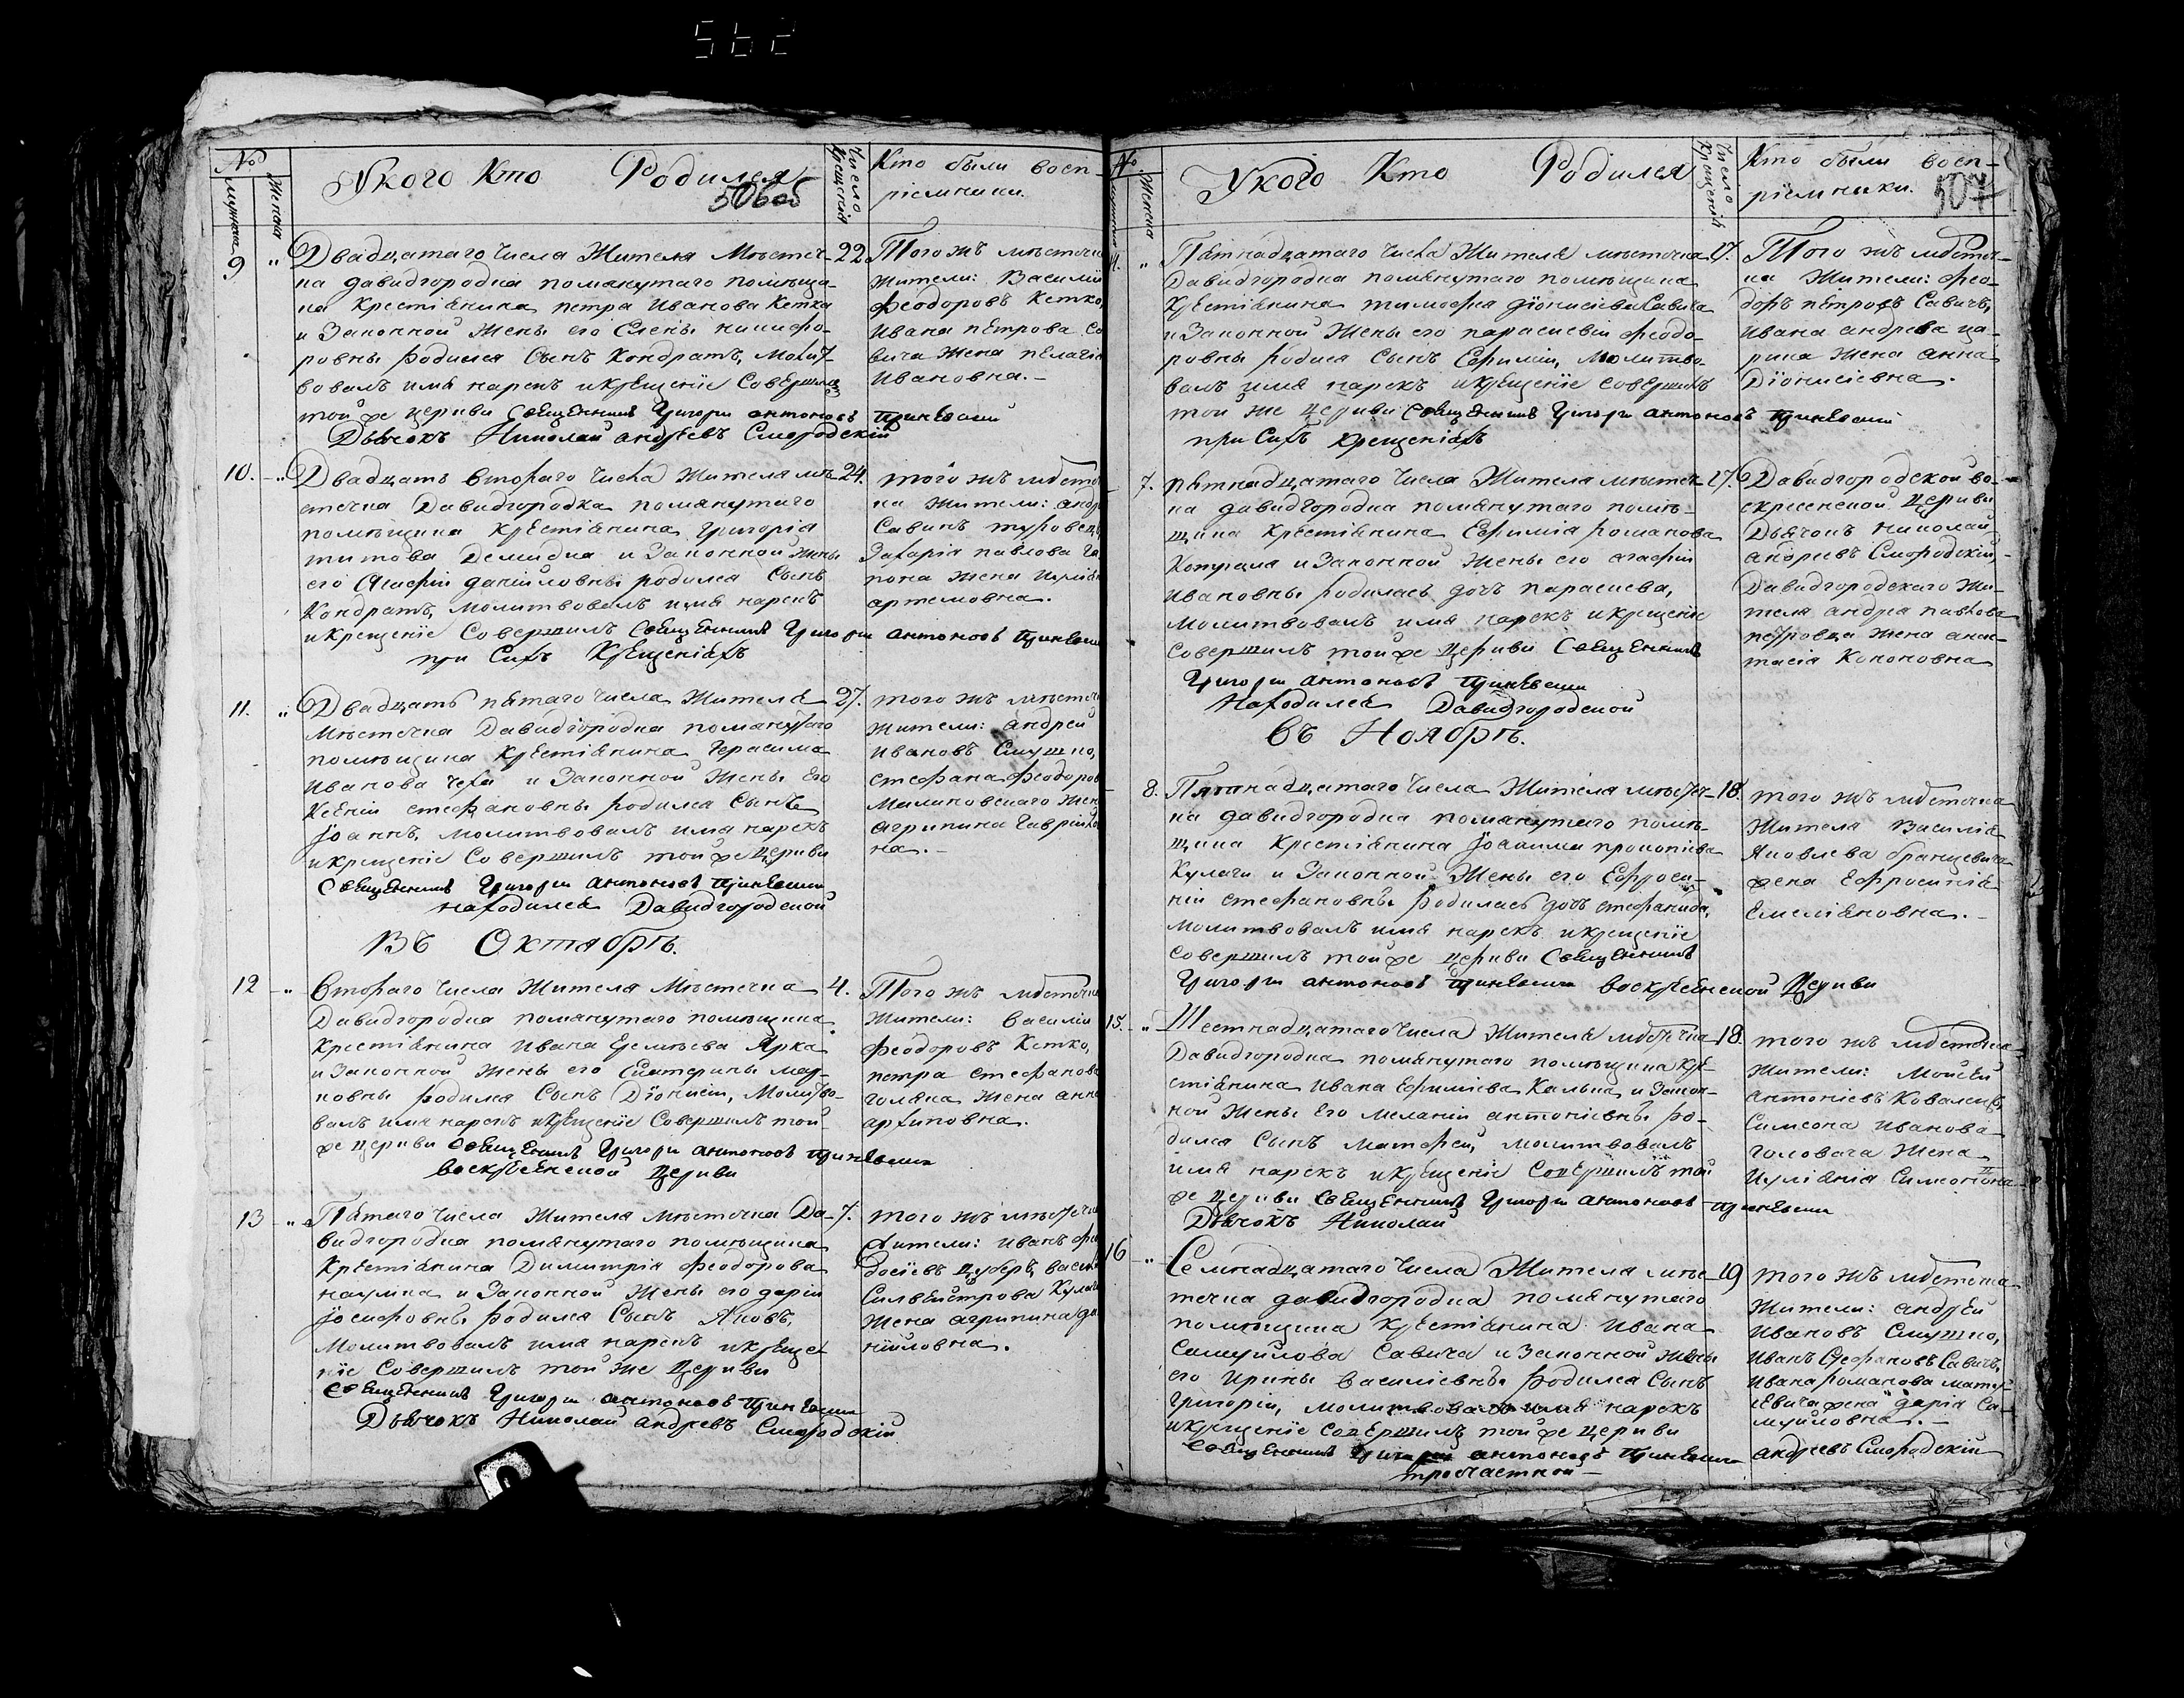 562
№
Мужска
Женска
У кого Кто Родился
506 об
Число крещенія
Кто были восп-
ріемники.
9
"
Двадцатаго Числа Жителя Мѣстеч-
ка давидгородка помянутаго помѣщи-
ка Крестіянина петра Иванова Кетка
и Законной Жены его Елены никифо-
ровны родился Сынъ Кондратъ, Молит-
вовалъ имя нарекъ и крещеніе Совершилъ
той же церкви Священникъ Григори антоновъ
Дьячокъ Николай андреевъ Смородскій
22
Того жъ мѣстечка
Жители: Василій
Феодоровъ Кетко,
Ивана петрова Са
вича Жена пелагія
Ивановна.-
10.
"
Двадцать втораго Числа Жителя мѣ-
стечка Давидгородка помянутаго
помѣщика Крестіянина Григорія
титова Демидка и Законной жены
его Агафіи даніиловны родился Сынъ
Кондратъ, молитвовалъ имя нарекъ
и крещеніе Совершилъ Священникъ Григори антоновъ
при Сихъ Крещеніяхъ
24.
того жъ мѣсте
ка Жители:
Савинъ
Захарія павлова
жена
артемовна.
11.
"
Двадцать пятаго Числа Жителя
Мѣстечка Давидгородка помянутаго
помѣщика Крестіянина Герасима
Иванова Чеха и Законной Жены Его
Ксеніи стефановны родился Сынъ
Іоаннъ, молитвовалъ имя нарекъ
и крещеніе Совершилъ той же Церкви
Священникъ Григори антоновъ
находился Давидгородской
27.
того жъ мѣстеч
жители: андрей
Ивановъ Смушко,
стефана Феодоров
Малиновскаго Жен
агрипина Гавріило
на.-
Въ Октябрѣ.
12
"
Втораго Числа Жителя Мѣстечка
Давидгородка помянутаго помѣщика
Крестіянина Ивана Ярка
и Законной Жены его Екатерины мар-
ковны родился Сынъ Діонисій, Молитво-
валъ имя нарекъ и крещеніе Совершилъ той
же церкви Священникъ Григори антоновъ
воскресенской Церкви
4.
Того жъ мѣстечка
Жители: василій
Феодоровъ Кетко,
петра стефанова
Жена анна
архиповна.
13
"
Пятаго Числа Жителя Мѣстечка Да-
видгородка помянутаго помѣщика
Крестіянина Димитрія Феодорова
наумика и Законной Жены его даріи
Іосифовны родился Сынъ Яковъ,
Молитвовалъ имя нарекъ и креще-
ніе Совершилъ той же Церкви
Священникъ Григори антоновъ
Дьячокъ Николай андреевъ Смородскій
7.
того жъ мѣстечк
жители: иванъ
Силвестрова Кулаг
Жена агрипина да
ніиловна.
№
Мужска
Женска
У кого Кто Родился
Число Крещенія
Кто были восп-
ріемники.
507
"
Пятнадцатаго Числа Жителя мѣстечка
Давидгородка помянутаго помѣщика
Крестіянина тимофея діонисіева Савича
и Законной Жены его параскевіи феодо-
ровны родился Сынъ Ефимій, Молитво-
валъ имя нарекъ и крещеніе совершилъ
той же Церкви Священникъ Григори антоновъ
при Сихъ крещеніяхъ
17.
Того жъ мѣстеч-
ка Жители: Фео-
доръ петровъ Савичъ,
Ивана андреева ца-
рика Жена анна
Діонисіевна.
7.
пятнадцатаго Числа Жителя мѣстеч-
ка давидгородка помянутаго помѣ-
щика Крестіянина Ефимія романова
и Законной Жены его агафіи
Ивановны родилась дочь параскева,
молитвовалъ имя нарекъ и крещеніе
совершилъ той же Церкви Священникъ
Григори антоновъ
Находился Давидгородской
17.
Давидгородской во-
скресенской Церкви
Дьячокъ николай
андреевъ Смородскій,
Давидгородскаго Жи-
теля андрея павлова
петровца жена анас-
тасія Кононовна
Въ Ноябрѣ.
8.
Пятнадцатаго Числа Жителя мѣстеч-
ка давидгородка помянутаго помѣ-
щика Крестіянина Іоакима прокопіева
Кулаги и Законной Жены его Ефроси-
ніи стефановны родилась дочь стефанида,
молитвовалъ имя нарекъ и крещеніе
совершилъ той же церкви Священникъ
Григори антоновъ воскресенской Церкви
18.
того жъ мѣстечка
Жителя Василія
Яковлева бранцевича
жена Ефросинія
Емеліяновна.-
15.
"
Шестнадцатаго Числа Жителя мѣстечка
Давидгородка помянутаго помѣщика Кре-
стіянина Ивана Ефиміева и Закон-
ной Жены Его меланіи антоніевны ро-
дился Сынъ матфей, молитвовалъ
имя нарекъ и крещеніе Совершилъ той
же Церкви Священникъ Григори антоновъ
Дьячокъ Николай
18.
того жъ мѣстечка
жители: Мойсей
антоніевъ Ковалецъ,
Симеона иванова
головача Жена
Иуліянія Симоновна
16
"
Семнадцатаго Числа Жителя мѣс-
течка давидгородка помянутаго
помѣщика Крестіянина Ивана
Самуйлова Савича и Законной жены
его Ирины василіевны родился Сынъ
Григорій, молитвовалъ имя нарекъ
и крещеніе совершилъ той же церкви
Священникъ Григори антоновъ
19
того жъ мѣстечка
Жители: андрей
Ивановъ Смушко,
Иванъ Стефановъ Савичъ,
Ивана романова матф-
іевича жена дарія Са-
муйловна.-
андреевъ Смородскій